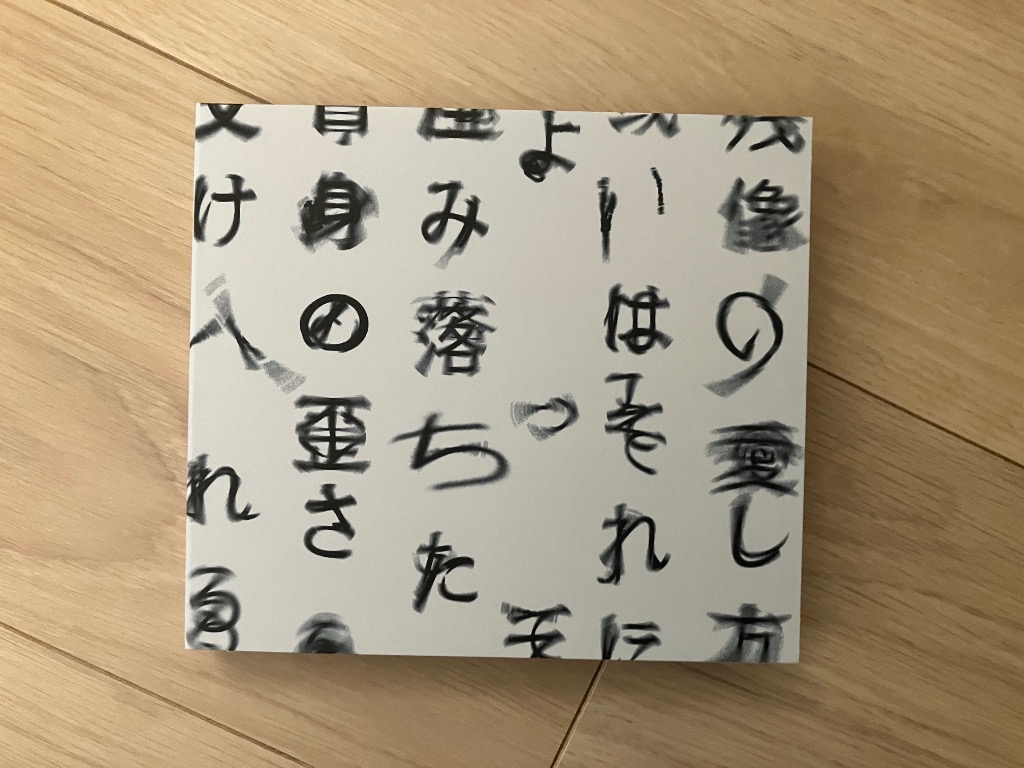 残像の愛し方
或いはそれに
よって
産み落ちた
自身の歪さ
受け入れる